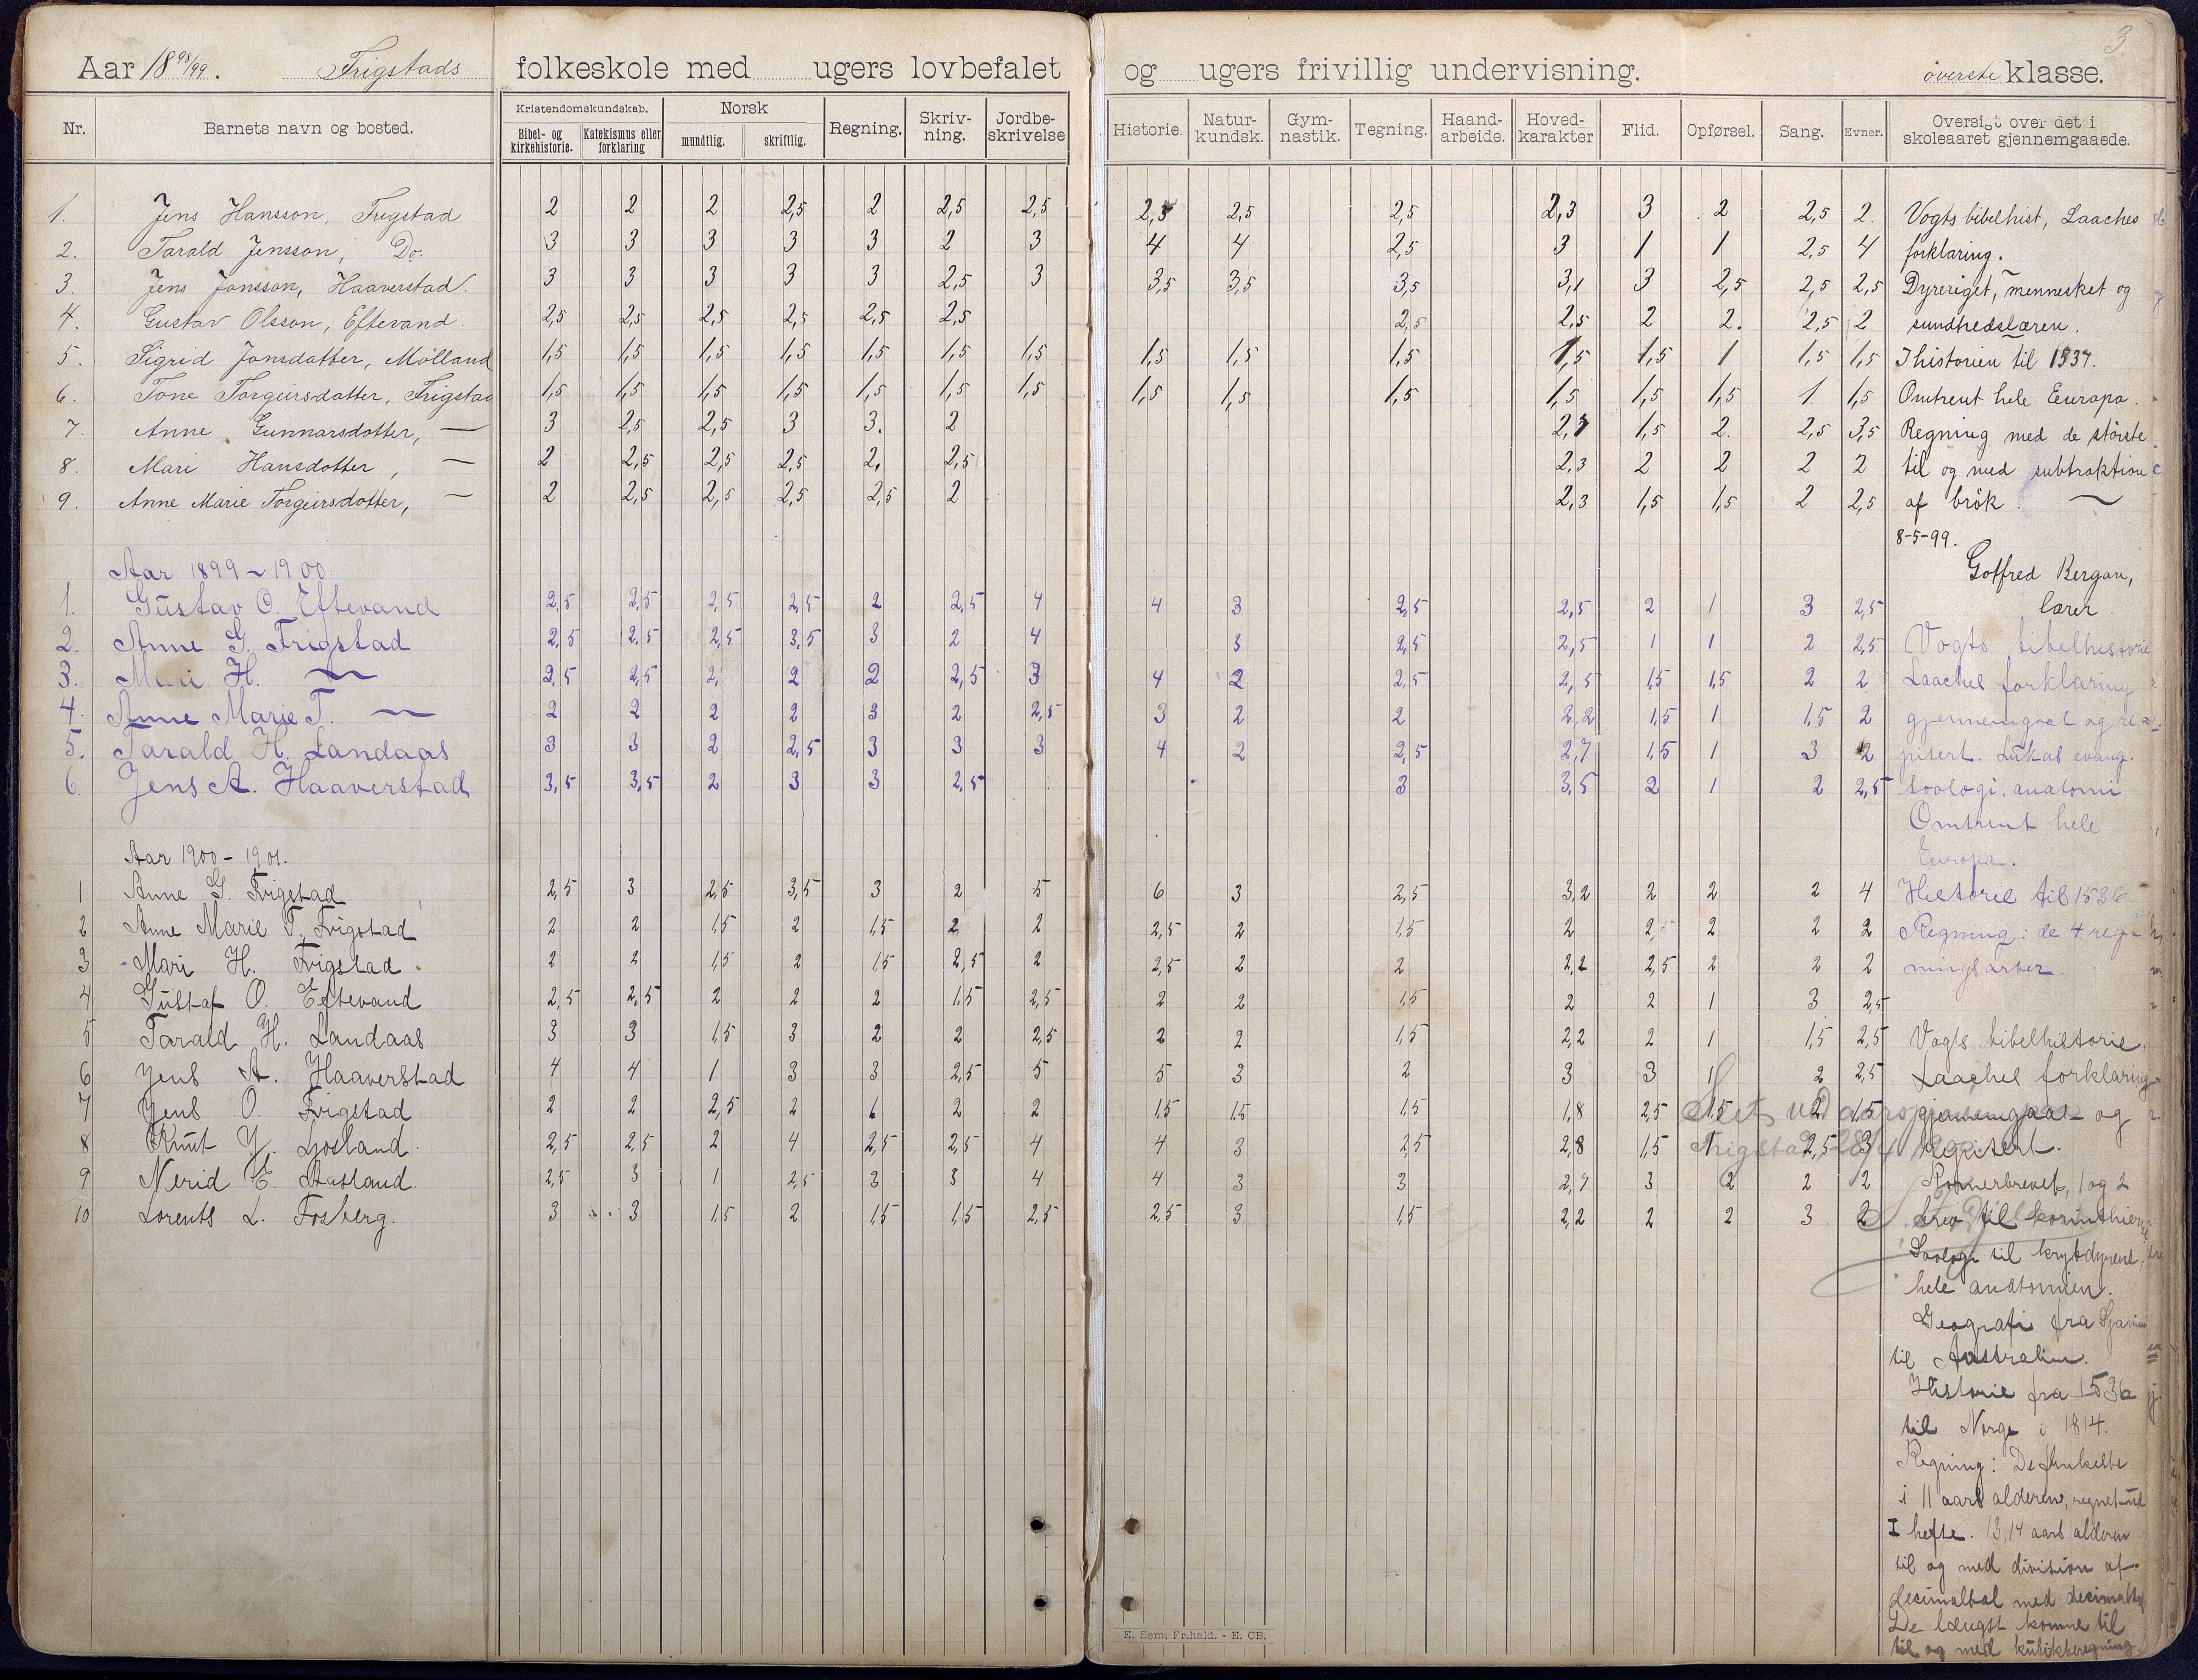 3.
Aar 18 98/99. Frigstads folkeskole med ugers lovbefalet og ugers frivillig undervisning. överste klasse.
Nr. Barnets navn og bosted. Kristendomskundskab. Bibel- og kirkehistorie. Katekismus eller forklaring Norsk mundtlig. skriftlig. Regning. Skriv-ning. Jordbe-skrivelse Historie. Natur-kundsk. Gym-nastik. Tegning. Haand-arbeide. Hoved-karakter Flid. Opførsel. Sang. Evner. Oversigt over det i skoleaaret gjennemgaaede.
1. Jens Hansson, Frigstad 2 2 2 2,5 2 2,5 2,5 2,5 2,5 2,5 2,3 3 2 2,5 2. Vogts bibelhist, Laaches
2. Tarald Jensson, Do. 3 3 3 3 3 2 3 4 4 2,5 3 1 1 2,5 4 forklaring.
3. Jens Jonsson, Haaverstad. 3 3 3 3 3 2,5 3 3,5 3,5 3,5 3,1 3 2,5 2,5 2,5 Dyreriget, mennesket og
4. Gustav Olsson, Eftevand. 2,5 2,5 2,5 2,5 2,5 2,5 2,5 2,5 2 2. 2,5 2 sundhedslæren.
5. Sigrid Jonsdatter, Mölland 1,5 1,5 1,5 1,5 1,5 1,5 1,5 1,5 1,5 1,5 1,5 1,5 1 1,5 1,5 I historien til 1537.
6. Tone Torgeirsdatter, Frigstad 1,5 1,5 1,5 1,5 1,5 1,5 1,5 1,5 1,5 1,5 1,5 1,5 1,5 1 1,5 Omtrent hele Europa.
7. Anne Gunnarsdotter, — 3 2,5 2,5 3 3. 2 2,7 1,5 2. 2,5 3,5 Regning med de störste
8. Mari Hansdotter, — 2 2,5 2,5 2,5 2. 2,5 2,3 2 2 2 2 til og med subtraktion
9. Anne Marie Torgeirsdotter, — 2 2,5 2,5 2,5 2,5 2 2,3 1,5 1,5 2 2,5 af brök. —
8-5-99.
Aar 1899-1900. Gotfred Bergan,
1. Gustav O. Eftevand 2,5 2,5 2,5 2,5 2 2,5 4 4 3 2,5 2,5 2 1 3 2,5 lærer.
2. Anne G. Frigstad 2,5 2.5 2,5 3,5 3 2 4 3 2,5 2,5 1 1 2 2,5 Vogts bibelhistorie
3. Mari H. — 2,5 2,5 2, 2 2 2,5 3 4 2 2,5 2,5 1,5 1,5 2 2 Laaches forklaring
4. Anne Marie T. — 2 2 2 2 3 2 2,5 3 2 2 2,2 1,5 1 1,5 2 gjennemgaat og re-
5. Tarald H. Landaas 3 3 2 2,5 3 3 3 4 2 2,5 2,7 1,5 1 3 2 pitert. Lukas evang.
6. Jens A. Haaverstad 3,5 3,5 2 3 3 2,5 3 3,5 2 1 2 2,5 soologi, anatomi
Omtrent hele
Aar 1900-1901. Europa.
1 Anne G. Frigstad 2,5 3 2,5 3,5 3 2 5 6 3 2,5 3,2 2 2 2 4 Historie til 1536
2 Anne Marie T. Frigstad 2 2 1,5 2 1,5 2 2 2,5 2 1,5 2 2 2 2 2 Regning: de 4 reg-
3 Mari H. Frigstad 2 2 1,5 2 1,5 2,5 2 2,5 2 2 2,2 2,5 2 2 2 ningsarter.
4 Gustaf O. Eftevand 2,5 2,5 2 2 2 1,5 2,5 2 2 1,5 2 2 1 3 2,5
5 Tarald H. Landaas 3 3 1,5 3 2 2 2,5 2 2 1,5 2,2 2 1 1,5 2,5 Vogts bibelhistorie.
6 Jens A. Haaverstad 4 4 1 3 3 2,5 5 5 3 2 3 3 1 2 2,5 Laaches forklaring
7 Jens O. Frigstad 2 2 2,5 2 1 2 2 1,5 1,5 1,5 1,8 2,5 1,5 2 1,5 gjennemgaat og
8 Knut J. Ljosland. 2,5 2,5 2 4 2,5 2,5 4 4 3 2,5 2,8 1,5 1 2,5 3 repitert.
9 Nerid E. Aasland. 2,5 3 1 2,5 3 3 4 4 3 3 2,7 3 2 2 2 Romerbrevet, 1 og 2
10 Lorents L. Fosberg. 3 3 1,5 2 1,5 1,5 2,5 2,5 3 1,5 2,2 2 2 3 2 brev til korinthierne
Soologi til krybdyrene,
hele anatomien.
Geografi fra Spanien
til Australien.
Historie fra 1536
til Norge i 1814.
Regning: De flinkeste
i 11 aars alderen, regnet ud
I hefte. 13,14 aars alderen
til og med division af
desimaltal med desimaltal
De længst komne til
til og med kubikberegning.
E. Sem. Fr.hald. - E. CB.